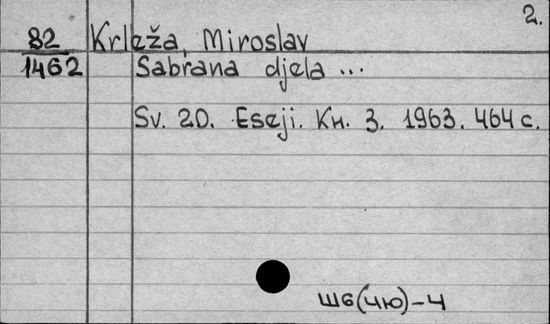 2.
82 Krleža, Miroslav
1462 Sabrana djela ...
Sv. 20. Eseji. Кн. 3. 1963. 464 с.
Ш6(4Ю)-4